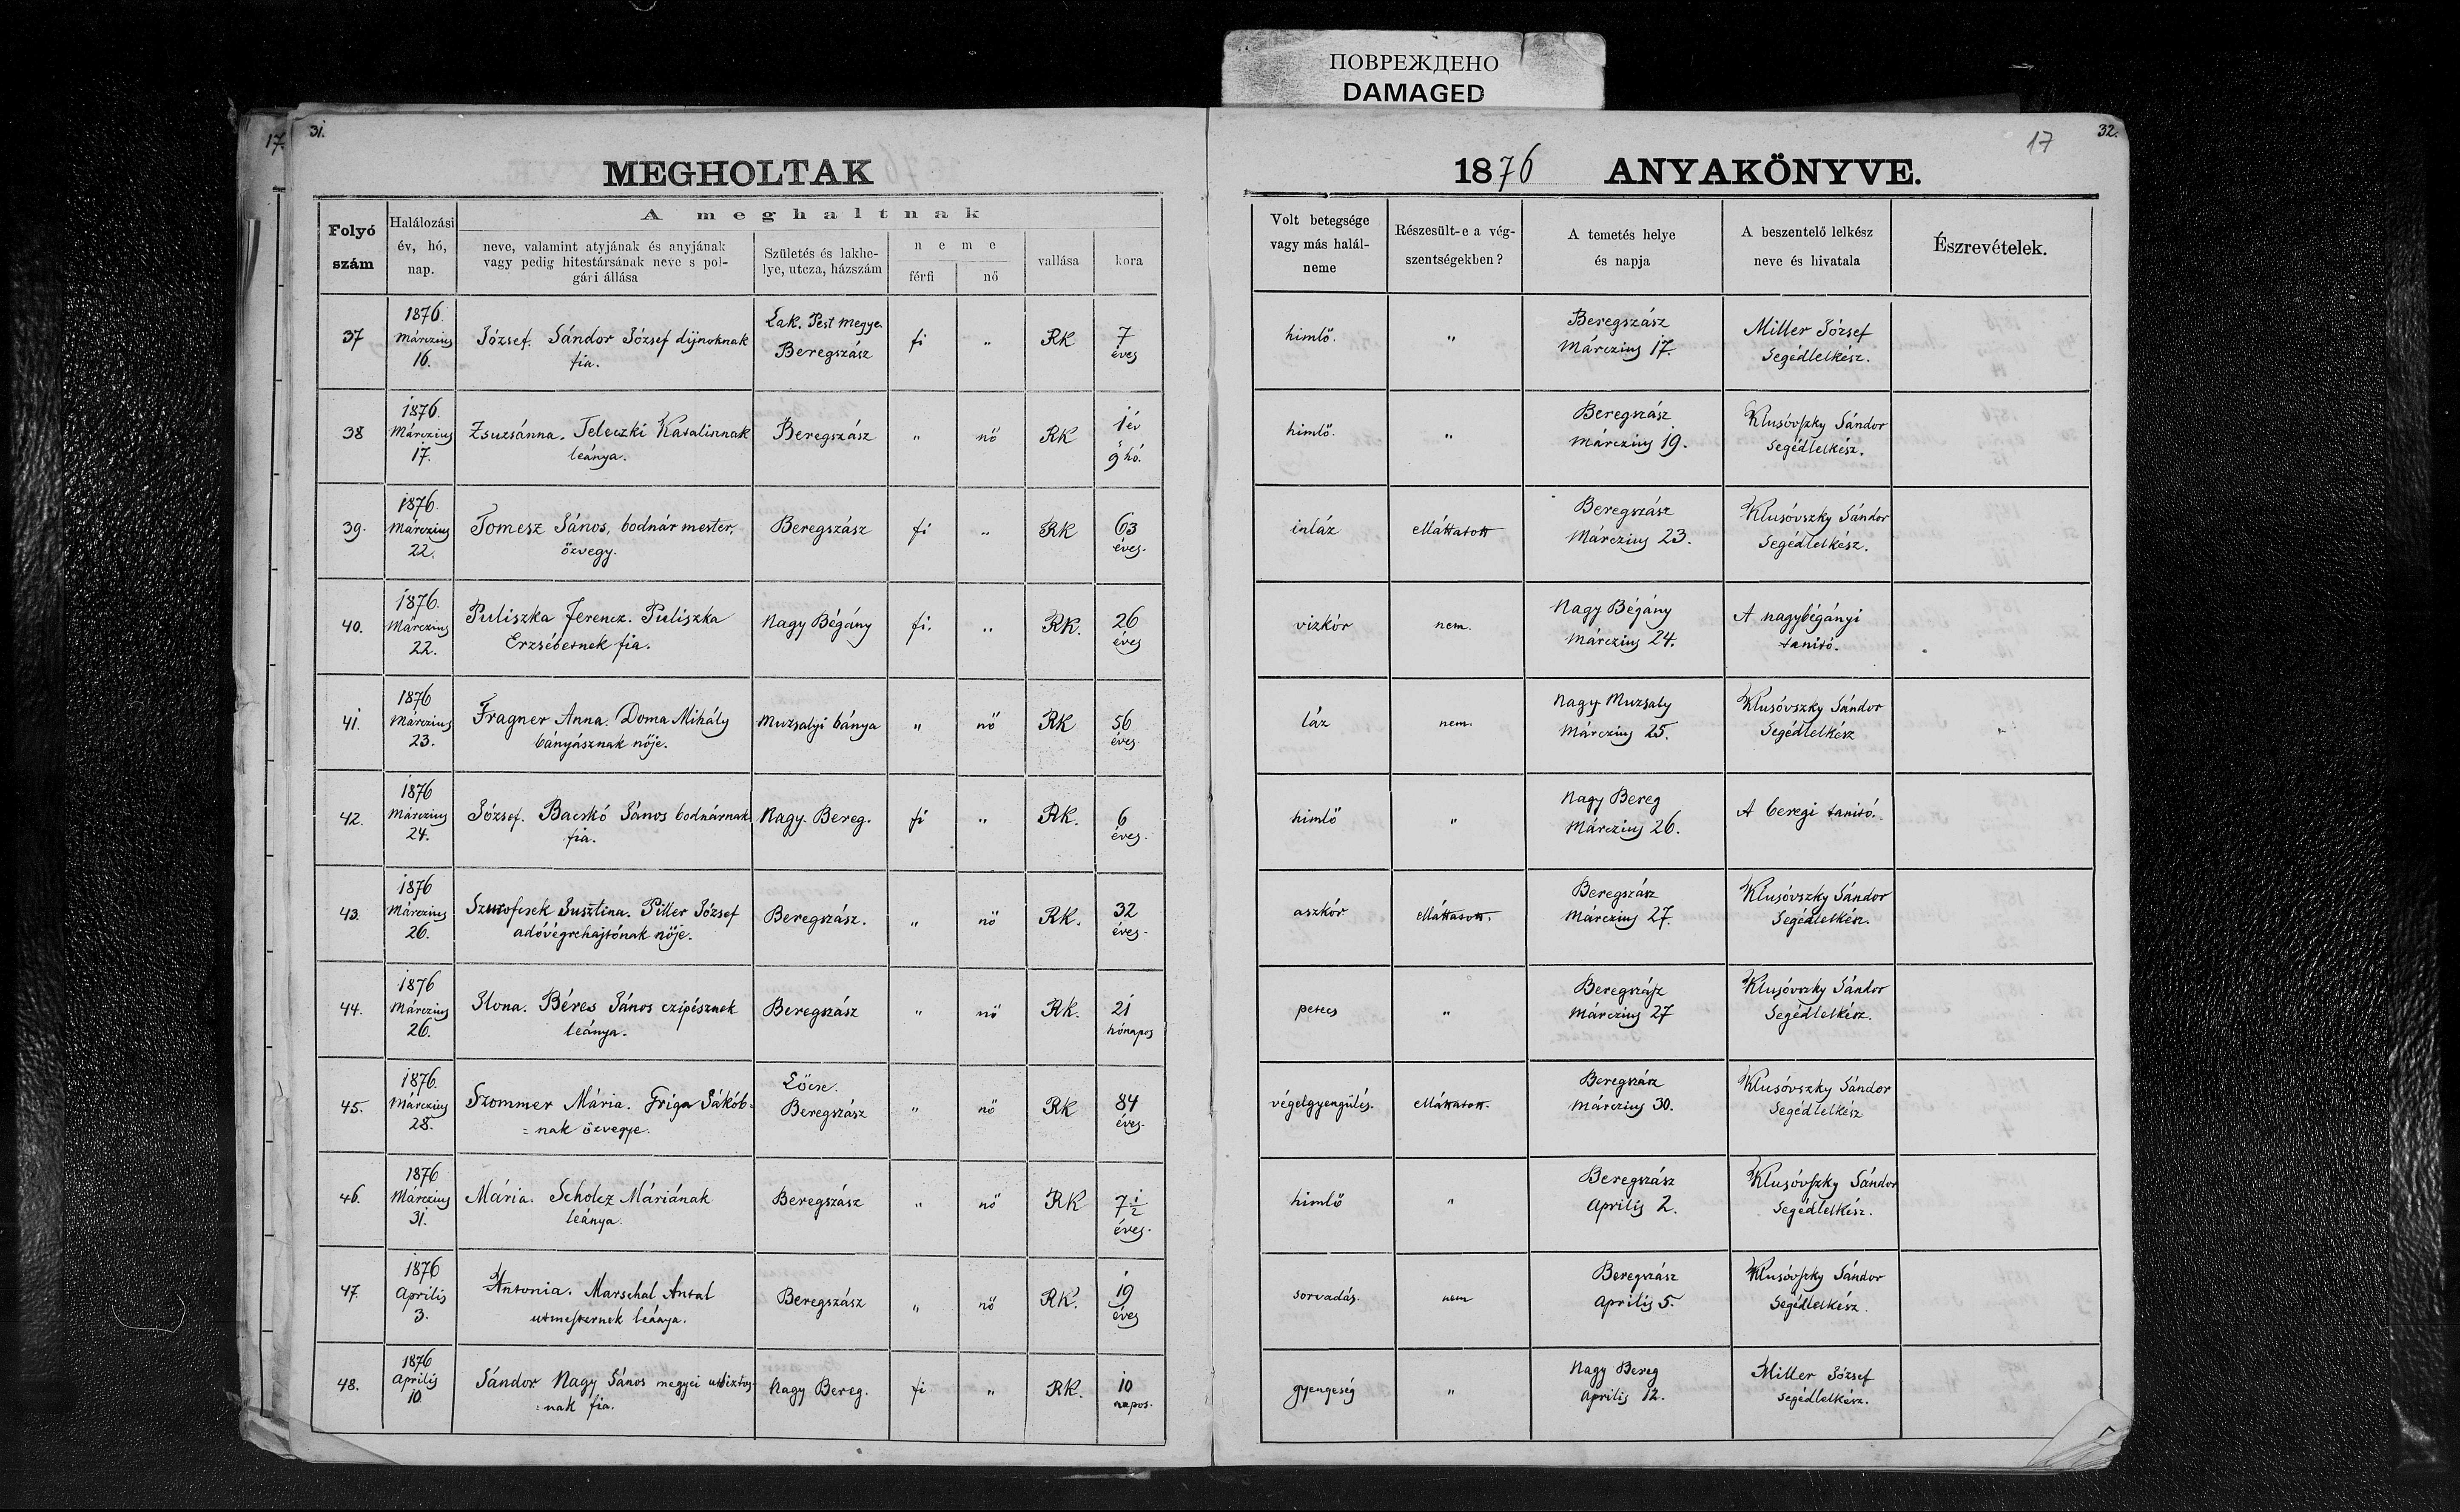 ПОВРЕЖДЕНО
DAMAGED
17.
31.
MEGHOLTAK
Folyó
szám
Halálozási
év, hó,
nap.
A meghaltnak
neve, valamint atyjának és anyjának
vagy pedig hitestársának neve s pol-
gári állása
Születés és lakhe-
lye, utcza, házszám
neme
férfi
nő
vallása
kora
37
1876.
Márczius
16.
József. Sándor József dijnoknak
fia.
Lak. Pest megye.
Beregszász
fi
„
RK
7
éves
38
1876.
Márczius
17.
Zsuzsánna. Teleczki Katalinnak
leánya.
Beregszász
„
nő
RK
1 év
9 hó.
39.
1876.
Márczius
22.
Tomesz János, bodnár mester,
özvegy.
Beregszász
fi
„
RK
63
éves.
40.
1876.
Márczius
22.
Puliszka Ferencz. Puliszka
Erzsébetnek fia.
Nagy Bégány
fi.
„
RK.
26
éves
41.
1876
Márczius
23.
Fragner Anna. Doma Mihály
bányásznak nője.
Muzsalyi bánya
„
nő
RK
56
éves
42.
1876
Márczius
24.
József. Bacskó János bodnárnak
fia.
Nagy Bereg.
fi
„
RK.
6
éves.
43.
1876
Márczius
26.
Jusztina. Piller József
adóvégrehajtónak nője.
Beregszász.
„
nő
RK.
32
éves.
44.
1876
Márczius
26.
Ilona. Béres János czipésznek
leánya.
Beregszász
„
nő
RK.
21
hónapos
45.
1876.
Márczius
28.
Szommer Mária. Friga Jákób-
=nak özvegye.
Lőcse.
Beregszász
„
nő
RK
84
éves.
46.
1876
Márczius
31.
Mária. Scholcz Máriának
leánya.
Beregszász
„
nő
RK
7 1/2
éves.
47.
1876
Április
3.
Antonia. Marschal Antal
utmesternek leánya.
Beregszász
„
nő
RK.
19
éves
48.
1876
Április
10.
Sándor. Nagy János megyei utbiztos-
=nak fia.
Nagy Bereg.
fi
„
RK.
10
napos.
17
32.
1876 ANYAKÖNYVE.
Volt betegsége
vagy más halál-
neme
Részesült-e a vég-
szentségekben?
A temetés helye
és napja
A beszentelő lelkész
neve és hivatala
Észrevételek.
himlő.
„
Beregszász
Márczius 17.
Miller József
Segédlelkész.
himlő.
„
Beregszász
Márczius 19.
Klusóvszky Sándor
Segédlelkész.
inláz
elláttatott
Beregszász
Márczius 23.
Klusóvszky Sándor
Segédlelkész.
vizkór
nem.
Nagy Bégány
Márczius 24.
A nagybégányi
tanitó.
láz
nem.
Nagy Muzsaly
Márczius 25.
Klusóvszky Sándor
Segédlelkész
„
himlő
„
Nagy Bereg
Márczius 26.
A beregi tanitó.
aszkór
elláttatott.
Beregszász
Márczius 27.
Klusóvszky Sándor
Segédlelkész.
petecs
„
Beregszász
Márczius 27
Klusóvszky Sándor
Segédlelkész.
végelgyengülés.
elláttatott.
Beregszász
Márczius 30.
Klusóvszky Sándor
Segédlelkész
himlő
„
Beregszász
Április 2.
Klusóvszky Sándor
Segédlelkész.
sorvadás.
nem
Beregszász
Április 5.
Klusóvszky Sándor
Segédlelkész.
gyengeség
„
Nagy Bereg
Április 12.
Miller József
segédlelkész.